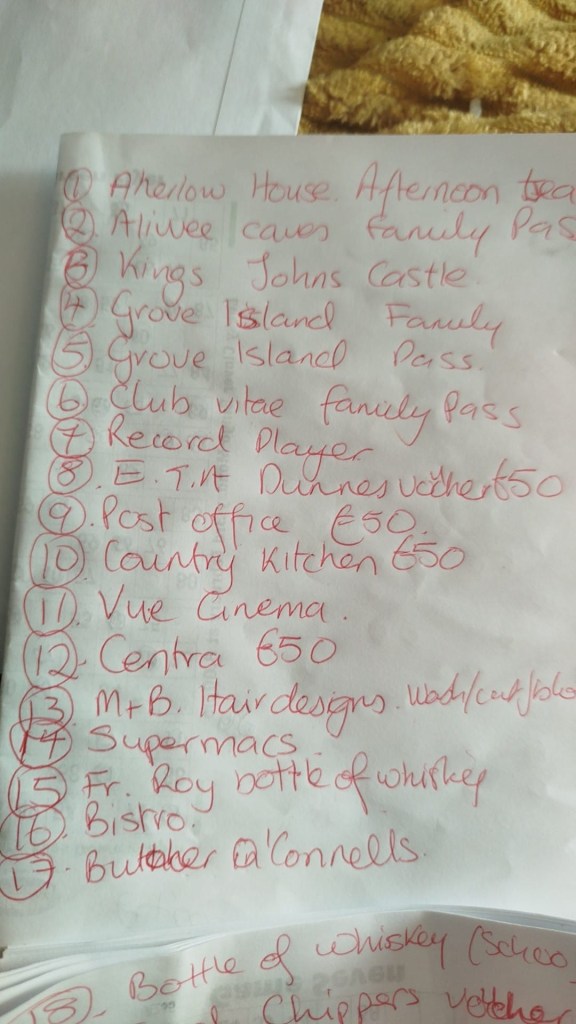 ① Aherlow House. Afternoon tea
② Aliwee caves family Pas
③ Kings Johns Castle.
④ Grove Island Family
⑤ Grove Island Pass.
⑥ Club vitae family Pass
⑦ Record Player
⑧. E.T.A Dunnes vocher €50
⑨. Post office €50.
⑩ Country Kitchen €50
⑪ Vue Cinema.
⑫. Centra €50
⑬ M+B. Hair designs. wash/cut/blo
⑭ Supermacs.
⑮ Fr. Roy bottle of whiskey
⑯. Bistro.
⑰. Butcher O'Connells.
⑱. Bottle of whiskey (Schoo
Chippers vocher